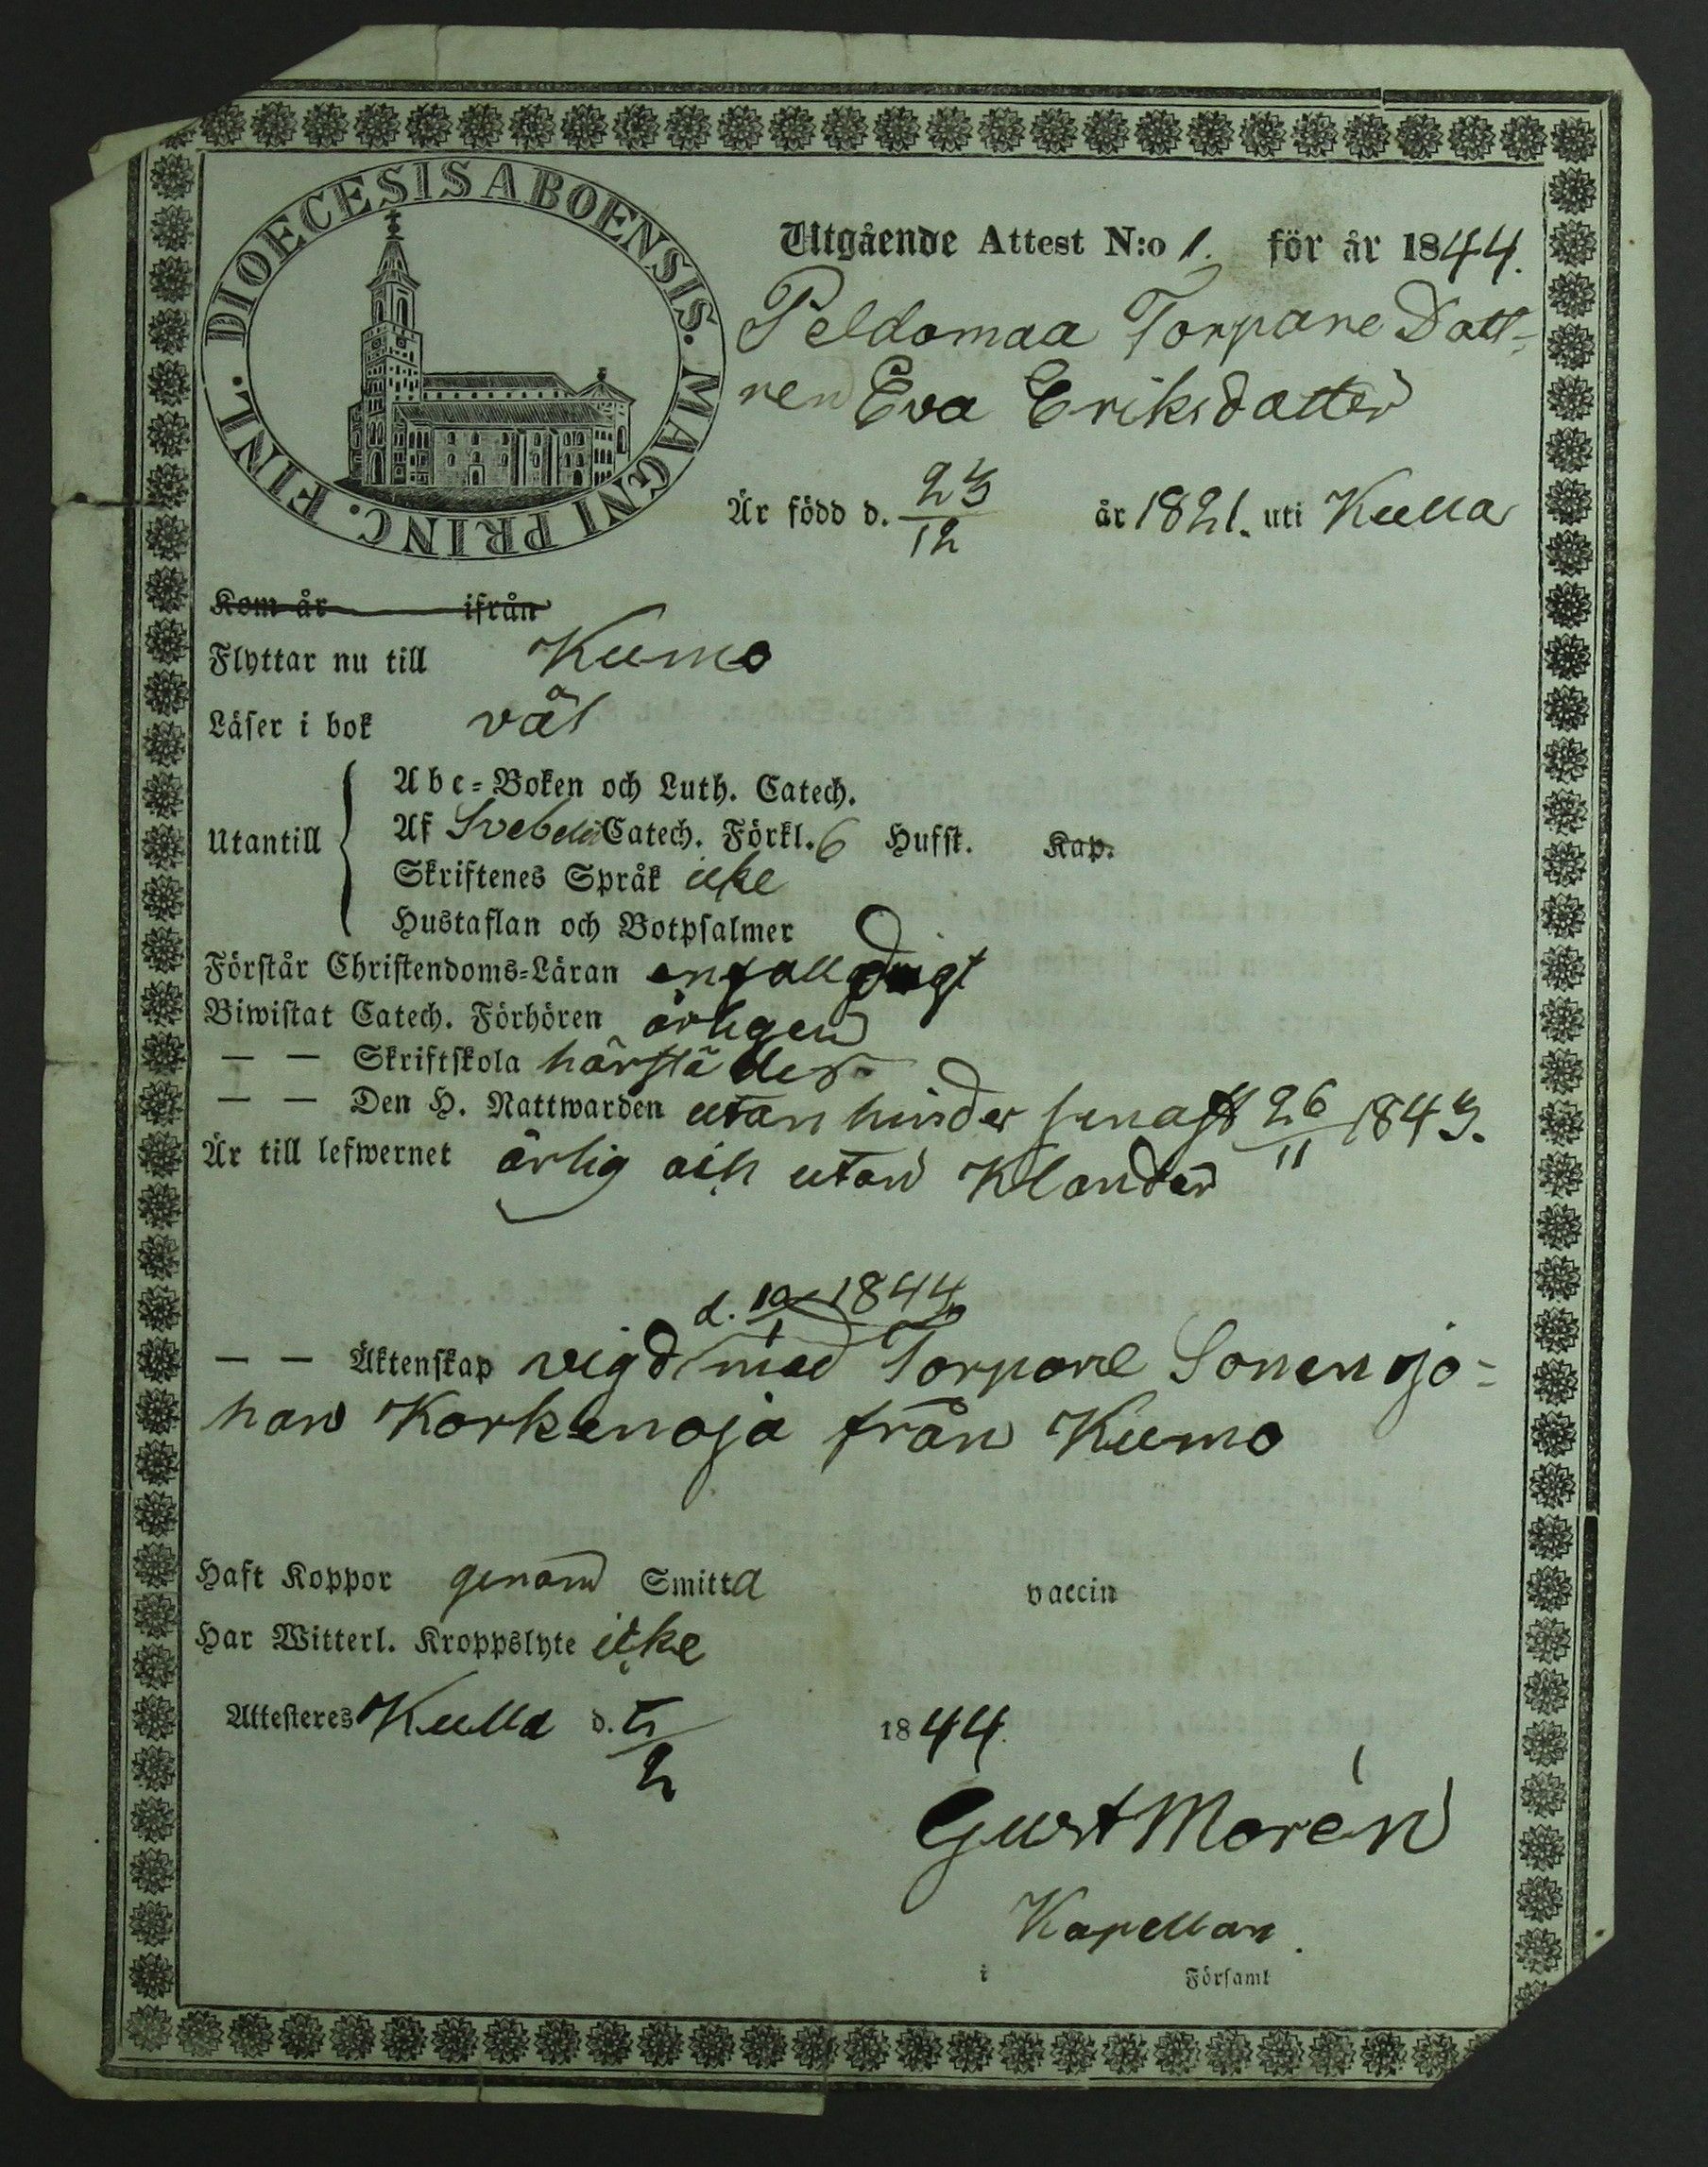 DIOECESIS ABOENSIS. MAGNI PRINC. FINL.
Utgående Attest N:o 1. för år 1844.
Peldomaa Torpare Dott-
ren Eva Eriksdotter
Är född d. 23/12 år 1821. uti Kulla
Kom år ifrån
Flyttar nu till Kumo
Läser i bok väl
Utantill
Abc-Boken och Luth. Catech.
Af Svebelii Catech. Förkl. 6 Hufst. Kap.
Skriftenes Språk icke
Hustaflan och Botpsalmer
Förstår Christendoms-Läran enfalldigt
Biwistat Catech. Förhören årligen
— — Skriftskola härstädes
— — Den H. Nattwarden utan hinder senast 26/11 1843.
Är till lefwernet ärlig och utan Klander
d. 10/1 1844
— — Äktenskap vigd med Torpare Sonen Jo-
han Korkenoja från Kumo
Haft Koppor genom Smitta vaccin
Har Witterl. Kroppslyte icke
Attesteres Kulla d. 5/2 1844.
Gust Morén
Kapellan.
i Församl